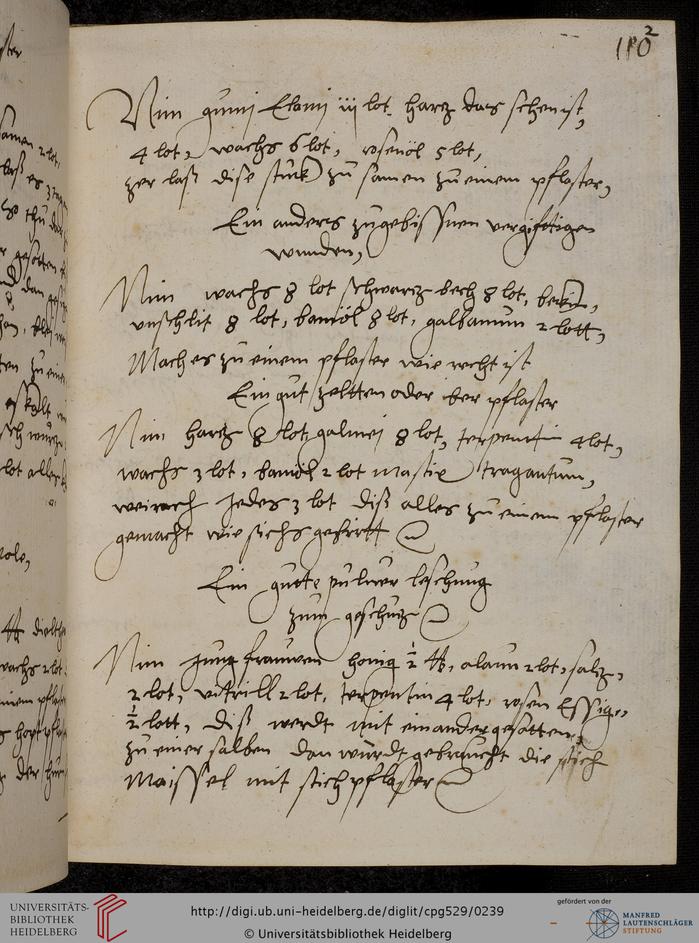 110
2
Nim gumj Elemj iij lot. hartz das schen ist,
4 lot, wachs 6 lot, rosenöl 5 lot,
zer lass dise stuck zu samen zu einem pflaster,
Ein anders zu gebissnen vergifftigen
wunden,
Nim wachs 8 lot schwartz bech 8 lot,
unschlit 8 lot, bamöl 8 lot, galbanum 2 lott,
Mach es zu einem pflaster wie recht ist
Ein gut zeltten oder ber pflaster
Nim hartz 8 lot, galmej 8 lot, terpentin 4 lot,
wachs 3 lot, bamöl 2 lot Mastix tragantum,
weirach Jedes 3 lot diss alles zu einem pflaster
gemacht wie sichs gehört
Ein guote pulver leschung
zum geschutz
Nim Jung frauwen honig ½ ℔, alaun 2 lot, saltz,
2 lot, vitrill 2 lot, terpentin 4 lot, rosen Essig,
½ lott, diss werdt mit einander gesotten,
zu einer salben dan wurdt gebraucht die stich
Maissel mit stichpflaster
UNIVERSITÄTS-
BIBLIOTHEK
HEIDELBERG
http://digi.ub.uni-heidelberg.de/diglit/cpg529/0239
© Universitätsbibliothek Heidelberg
gefördert von der
MANFRED
LAUTENSCHLÄGER
STIFTUNG